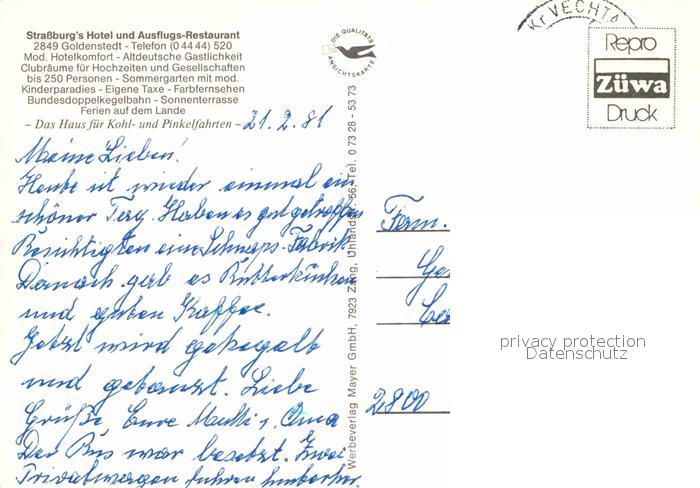 Straßburg's Hotel und Ausflugs-Restaurant
2849 Goldenstedt - Telefon (0 44 44) 520
Mod. Hotelkomfort - Altdeutsche Gastlichkeit
Clubräume für Hochzeiten und Gesellschaften
bis 250 Personen - Sommergarten mit mod.
Kinderparadies - Eigene Taxe - Farbfernsehen
Bundesdoppelkegelbahn - Sonnenterrasse
Ferien auf dem Lande
- Das Haus für Kohl- und Pinkelfahrten -
21.2.81
Meine Lieben!
Heute ist wieder einmal ein
schöner Tag. Haben es gut getroffen
Besichtigten eine Schnaps-Fabrik
Danach gab es Butterkuchen
und guten Kaffee.
Jetzt wird gekegelt
und getanzt. Liebe
Grüße, Eure Mutti, Oma
Der Bus war besetzt. Zwei
Privatwagen fuhren hinterher.
DIE QUALITÄTS
ANSICHTSKARTE
Werbeverlag Mayer GmbH, 7923 Zang, Uhlandstr. 56, Tel. 0 73 28 - 53 73
VECHTA
Repro
Züwa
Druck
Fam.
2800
privacy protection
Datenschutz